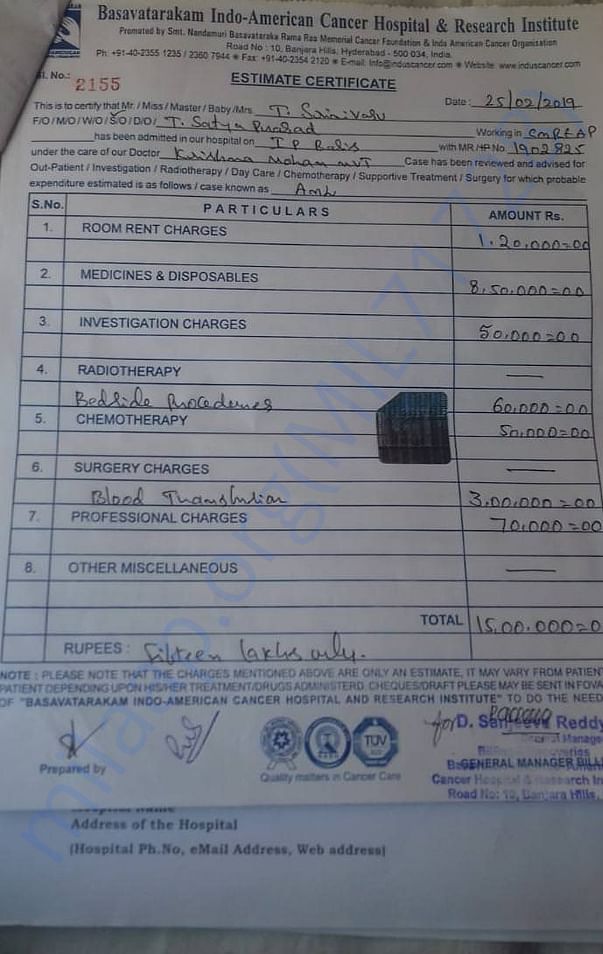 Basavatarakam Indo-American Cancer Hospital & Research Institute
Promoted by Smt. Nandamuri Basavataraka Rama Rao Memorial Cancer Foundation & Indo American Cancer Organisation
Road No : 10, Banjara Hills, Hyderabad - 500 034, India.
Ph: +91-40-2355 1235 / 2360 7944 Fax: +91-40-2354 2120 E-mail: Info@induscancer.com Website: www.induscancer.com
l. No.: 2155
ESTIMATE CERTIFICATE
Date : 25/02/2019
This is to certify that Mr. / Miss / Master / Baby /Mrs. T. Srinivasu
F/O / M/O / W/O / S/O / D/O / T. Satya Prasad Working in
has been admitted in our hospital on I P Basis with MR /HP No 1902825
under the care of our Doctor Krishna Mohan MVT Case has been reviewed and advised for
Out-Patient / Investigation / Radiotherapy / Day Care / Chemotherapy / Supportive Treatment / Surgery for which probable
expenditure estimated is as follows / case known as AML
S.No. PARTICULARS AMOUNT Rs.
1. ROOM RENT CHARGES 1,20,000=00
2. MEDICINES & DISPOSABLES 8,50,000=00
3. INVESTIGATION CHARGES 50,000=00
4. RADIOTHERAPY —
Bedside Procedures 60,000=00
5. CHEMOTHERAPY 50,000=00
6. SURGERY CHARGES —
Blood Transfusion 3,00,000=00
7. PROFESSIONAL CHARGES 70,000=00
8. OTHER MISCELLANEOUS —
TOTAL 15,00,000=0
RUPEES : Fifteen lakhs only.
NOTE : PLEASE NOTE THAT THE CHARGES MENTIONED ABOVE ARE ONLY AN ESTIMATE, IT MAY VARY FROM PATIENT
PATIENT DEPENDING UPON HIS/HER TREATMENT/DRUGS ADMINISTERD. CHEQUES/DRAFT PLEASE MAY BE SENT IN FOVA
OF "BASAVATARAKAM INDO-AMERICAN CANCER HOSPITAL AND RESEARCH INSTITUTE" TO DO THE NEED
for D. Reddy
Manage
TUV
GENERAL MANAGER BILLI
Prepared by
Quality matters in Cancer Care
Cancer Hospital & Research In
Road No: 10, Banjara Hills,
Address of the Hospital
(Hospital Ph.No, eMail Address, Web address)